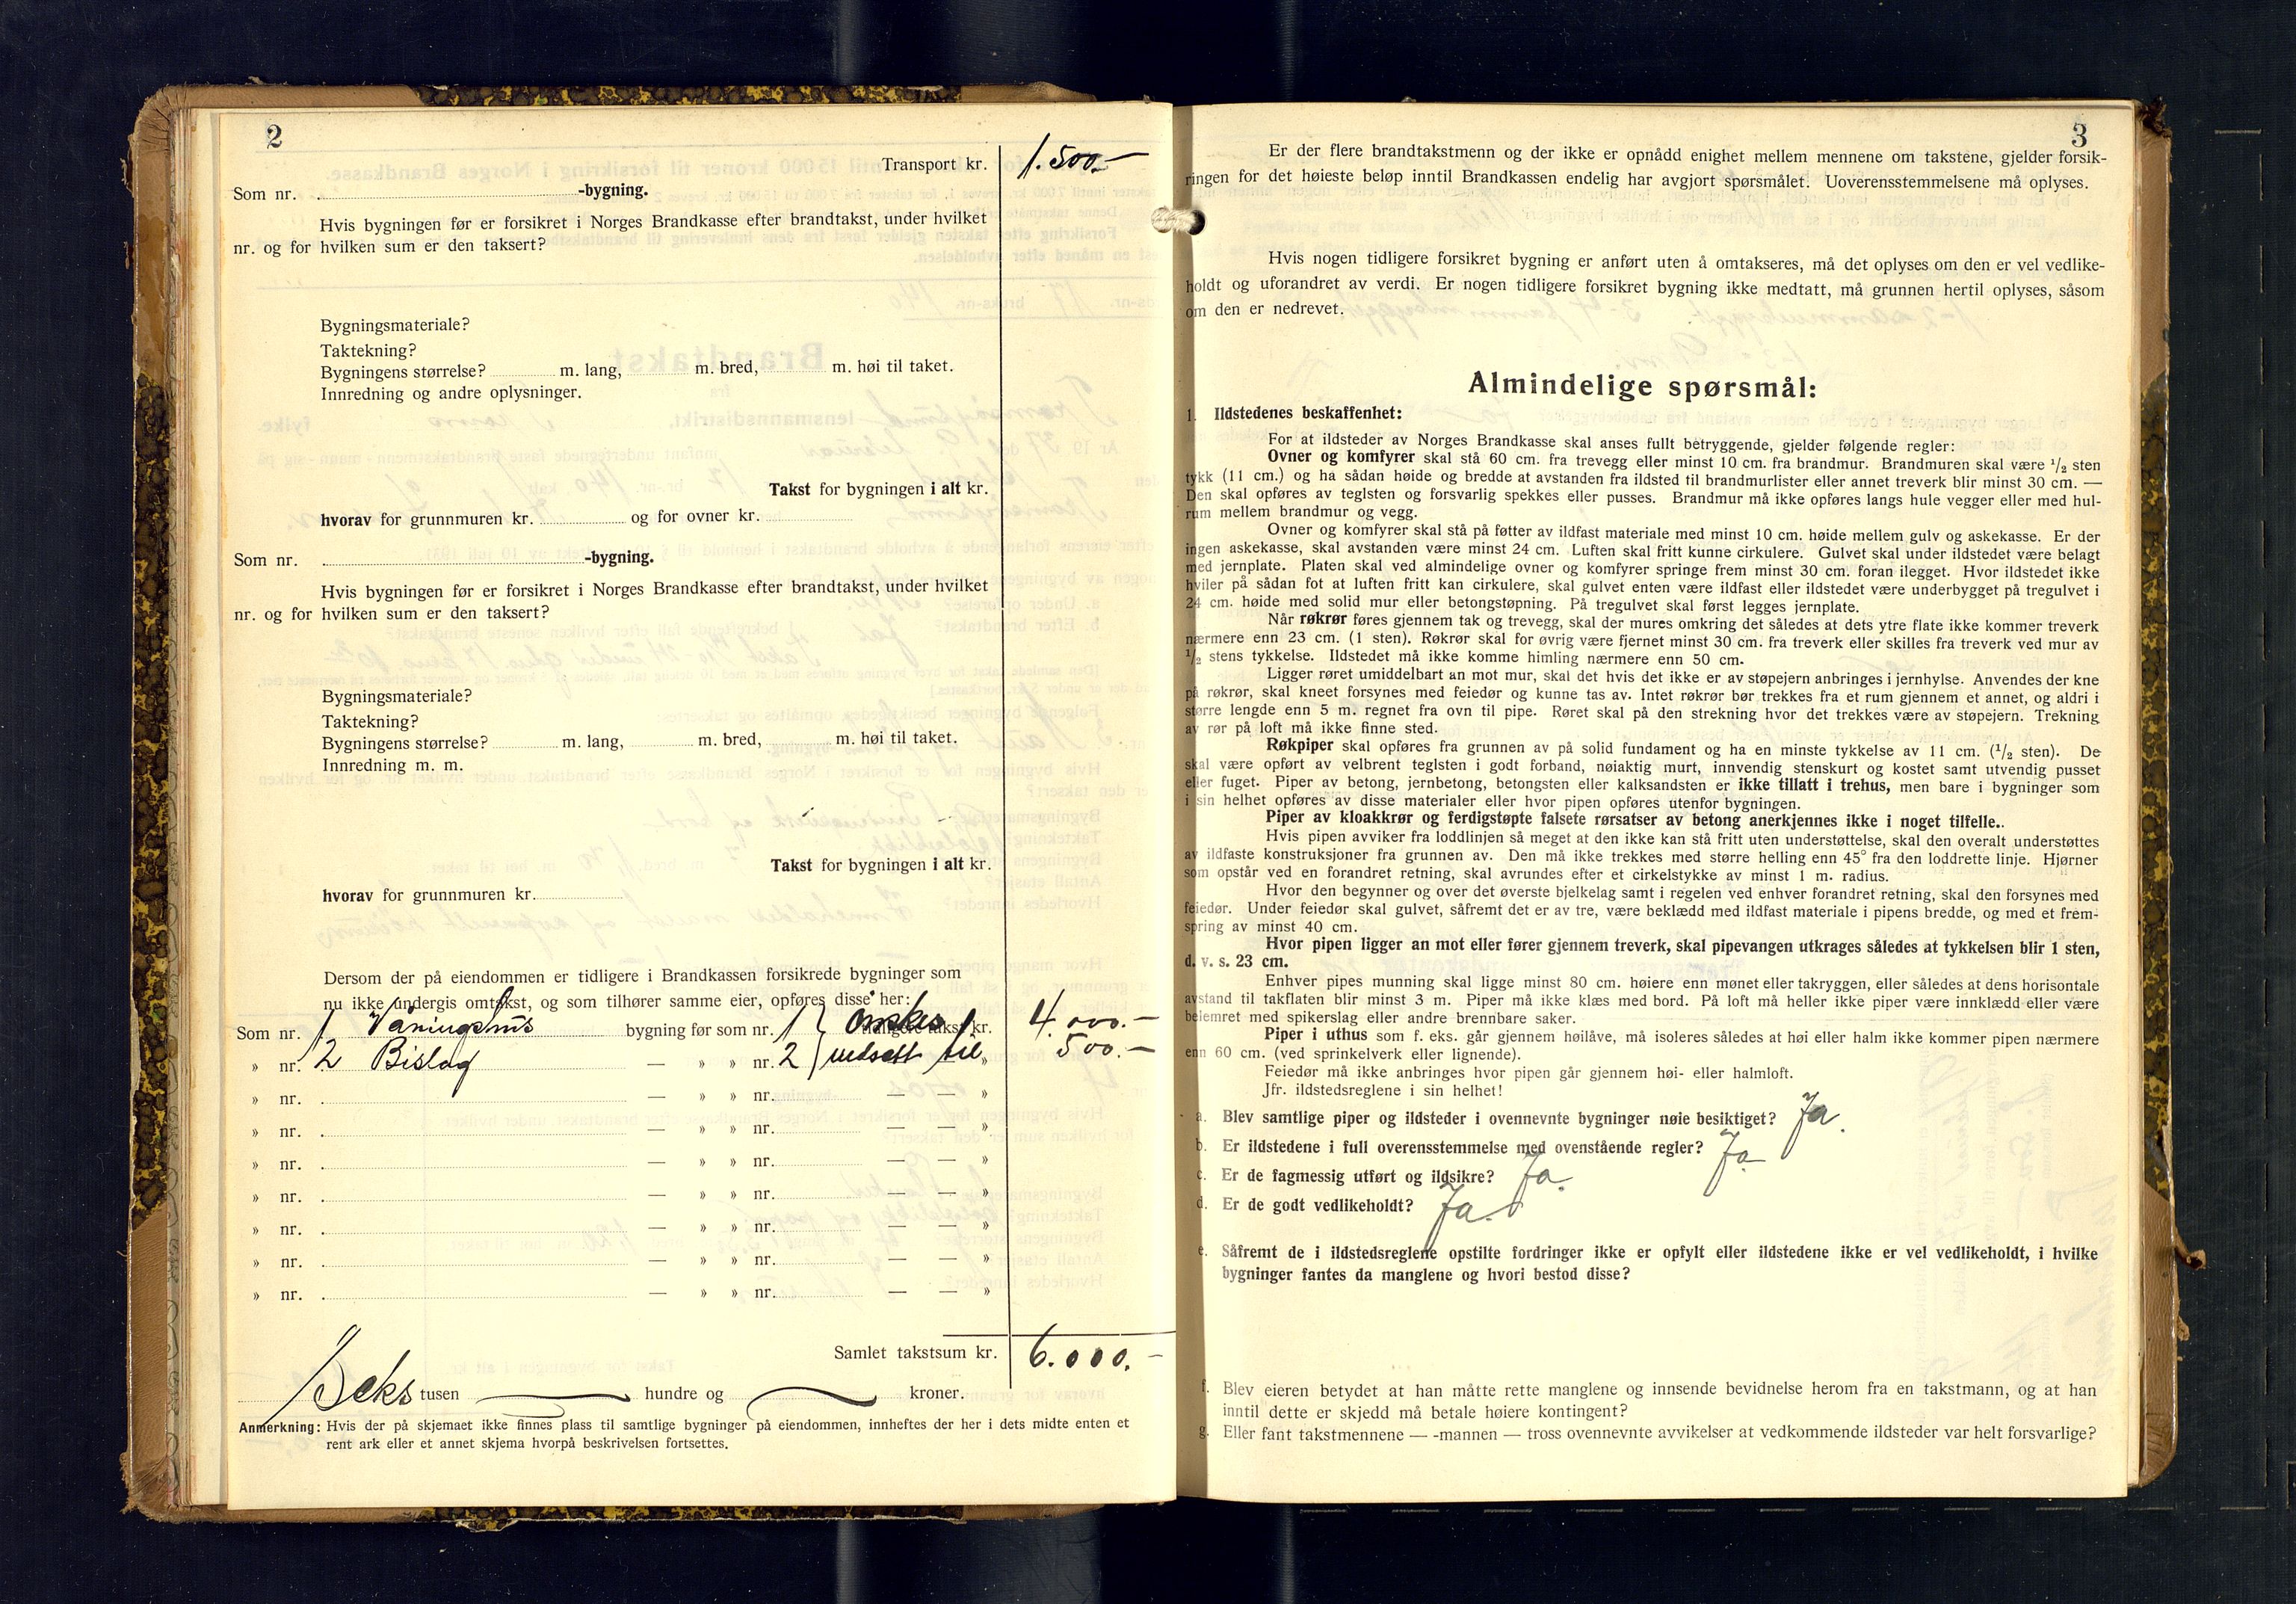 2
Transport kr. 1.500.-
Som nr. -bygning.
Hvis bygningen før er forsikret i Norges Brandkasse efter brandtakst, under hvilket
nr. og for hvilken sum er den taksert?
Bygningsmateriale?
Taktekning?
Bygningens størrelse? m. lang, m. bred, m. høi til taket.
Innredning og andre oplysninger.
Takst for bygningen i alt kr.
hvorav for grunnmuren kr. og for ovner kr.
Som nr. -bygning.
Hvis bygningen før er forsikret i Norges Brandkasse efter brandtakst, under hvilket
nr. og for hvilken sum er den taksert?
Bygningsmateriale?
Taktekning?
Bygningens størrelse? m. lang, m. bred, m. høi til taket.
Innredning m. m.
Takst for bygningen i alt kr.
hvorav for grunnmuren kr.
Dersom der på eiendommen er tidligere i Brandkassen forsikrede bygninger som
nu ikke undergis omtakst, og som tilhører samme eier, opføres disse her:
Som nr. 1 Våningshus bygning før som nr. 1 } ønskes tidligere takst kr. 4.000.-
» nr. 2 Bislag — » » nr. 2 } nedsatt til » 500.-
» nr. — » » nr. — — »
» nr. — » » nr. — — »
» nr. — » » nr. — — »
» nr. — » » nr. — — »
» nr. — » » nr. — — »
» nr. — » » nr. — — »
» nr. — » » nr. — — »
Samlet takstsum kr. 6.000.-
Seks tusen — hundre og — kroner.
Anmerkning: Hvis der på skjemaet ikke finnes plass til samtlige bygninger på eiendommen, innheftes der her i dets midte enten et
rent ark eller et annet skjema hvorpå beskrivelsen fortsettes.
3
Er der flere brandtakstmenn og der ikke er opnådd enighet mellem mennene om takstene, gjelder forsik-
ringen for det høieste beløp inntil Brandkassen endelig har avgjort spørsmålet. Uoverensstemmelsene må oplyses.
Hvis nogen tidligere forsikret bygning er anført uten å omtakseres, må det oplyses om den er vel vedlike-
holdt og uforandret av verdi. Er nogen tidligere forsikret bygning ikke medtatt, må grunnen hertil oplyses, såsom
om den er nedrevet.
Almindelige spørsmål:
1. Ildstedenes beskaffenhet:
For at ildsteder av Norges Brandkasse skal anses fullt betryggende, gjelder følgende regler:
Ovner og komfyrer skal stå 60 cm. fra trevegg eller minst 10 cm. fra brandmur. Brandmuren skal være 1/2 sten
tykk (11 cm.) og ha sådan høide og bredde at avstanden fra ildsted til brandmurlister eller annet treverk blir minst 30 cm. —
Den skal opføres av teglsten og forsvarlig spekkes eller pusses. Brandmur må ikke opføres langs hule vegger eller med hul-
rum mellem brandmur og vegg.
Ovner og komfyrer skal stå på føtter av ildfast materiale med minst 10 cm. høide mellem gulv og askekasse. Er der
ingen askekasse, skal avstanden være minst 24 cm. Luften skal fritt kunne cirkulere. Gulvet skal under ildstedet være belagt
med jernplate. Platen skal ved almindelige ovner og komfyrer springe frem minst 30 cm. foran ilegget. Hvor ildstedet ikke
hviler på sådan fot at luften fritt kan cirkulere, skal gulvet enten være ildfast eller ildstedet være underbygget på tregulvet i
24 cm. høide med solid mur eller betongstøpning. På tregulvet skal først legges jernplate.
Når røkrør føres gjennem tak og trevegg, skal der mures omkring det således at dets ytre flate ikke kommer treverk
nærmere enn 23 cm. (1 sten). Røkrør skal for øvrig være fjernet minst 30 cm. fra treverk eller skilles fra treverk ved mur av
1/2 stens tykkelse. Ildstedet må ikke komme himling nærmere enn 50 cm.
Ligger røret umiddelbart an mot mur, skal det hvis det ikke er av støpejern anbringes i jernhylse. Anvendes der kne
på røkrør, skal kneet forsynes med feiedør og kunne tas av. Intet røkrør bør trekkes fra et rum gjennem et annet, og aldri i
større lengde enn 5 m. regnet fra ovn til pipe. Røret skal på den strekning hvor det trekkes være av støpejern. Trekning
av rør på loft må ikke finne sted.
Røkpiper skal opføres fra grunnen av på solid fundament og ha en minste tykkelse av 11 cm. (1/2 sten). De
skal være opført av velbrent teglsten i godt forband, nøiaktig murt, innvendig stenskurt og kostet samt utvendig pusset
eller fuget. Piper av betong, jernbetong, betongsten eller kalksandsten er ikke tillatt i trehus, men bare i bygninger som
i sin helhet opføres av disse materialer eller hvor pipen opføres utenfor bygningen.
Piper av kloakkrør og ferdigstøpte falsete rørsatser av betong anerkjennes ikke i noget tilfelle..
Hvis pipen avviker fra loddlinjen så meget at den ikke kan stå fritt uten understøttelse, skal den overalt understøttes
av ildfaste konstruksjoner fra grunnen av. Den må ikke trekkes med større helling enn 45° fra den loddrette linje. Hjørner
som opstår ved en forandret retning, skal avrundes efter et cirkelstykke av minst 1 m. radius.
Hvor den begynner og over det øverste bjelkelag samt i regelen ved enhver forandret retning, skal den forsynes med
feiedør. Under feiedør skal gulvet, såfremt det er av tre, være beklædd med ildfast materiale i pipens bredde, og med et frem-
spring av minst 40 cm.
Hvor pipen ligger an mot eller fører gjennem treverk, skal pipevangen utkrages således at tykkelsen blir 1 sten,
d. v. s. 23 cm.
Enhver pipes munning skal ligge minst 80 cm. høiere enn mønet eller takryggen, eller således at dens horisontale
avstand til takflaten blir minst 3 m. Piper må ikke klæs med bord. På loft må heller ikke piper være innklædd eller være
beiemret med spikerslag eller andre brennbare saker.
Piper i uthus som f. eks. går gjennem høilåve, må isoleres således at høi eller halm ikke kommer pipen nærmere
enn 60 cm. (ved sprinkelverk eller lignende).
Feiedør må ikke anbringes hvor pipen går gjennem høi- eller halmloft.
Jfr. ildstedsreglene i sin helhet!
a. Blev samtlige piper og ildsteder i ovennevnte bygninger nøie besiktiget? Ja.
b. Er ildstedene i full overensstemmelse med ovenstående regler? Ja
c. Er de fagmessig utført og ildsikre? Ja.
d. Er de godt vedlikeholdt? Ja.
e. Såfremt de i ildstedsreglene opstilte fordringer ikke er opfylt eller ildstedene ikke er vel vedlikeholdt, i hvilke
bygninger fantes da manglene og hvori bestod disse?
f. Blev eieren betydet at han måtte rette manglene og innsende bevidnelse herom fra en takstmann, og at han
inntil dette er skjedd må betale høiere kontingent?
g. Eller fant takstmennene — -mannen — tross ovennevnte avvikelser at vedkommende ildsteder var helt forsvarlige?